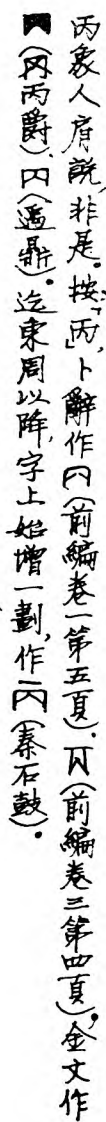 丙象人肩說,非是。按:「丙」,卜辭作𠕁(前編卷一第五頁).𠕁(前編卷三第四頁),金文作
(父丙爵)、(遹鼎)。迄東周以降,字上始增一劃,作(秦石鼓)。